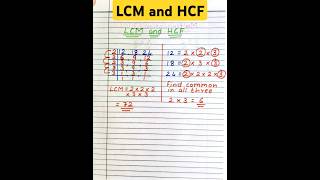 LCM and HCF
LCM and HCF
2 12, 18, 24
2 6, 9, 12
2 3, 9, 6
3 3, 9, 3
3 1, 3, 1
1, 1, 1
LCM = 2 × 2 × 2
× 3 × 3
= 72
12 = 2 × 2 × 3
18 = 2 × 3 × 3
24 = 2 × 2 × 2 × 3
Find common
in all three
2 × 3 = 6